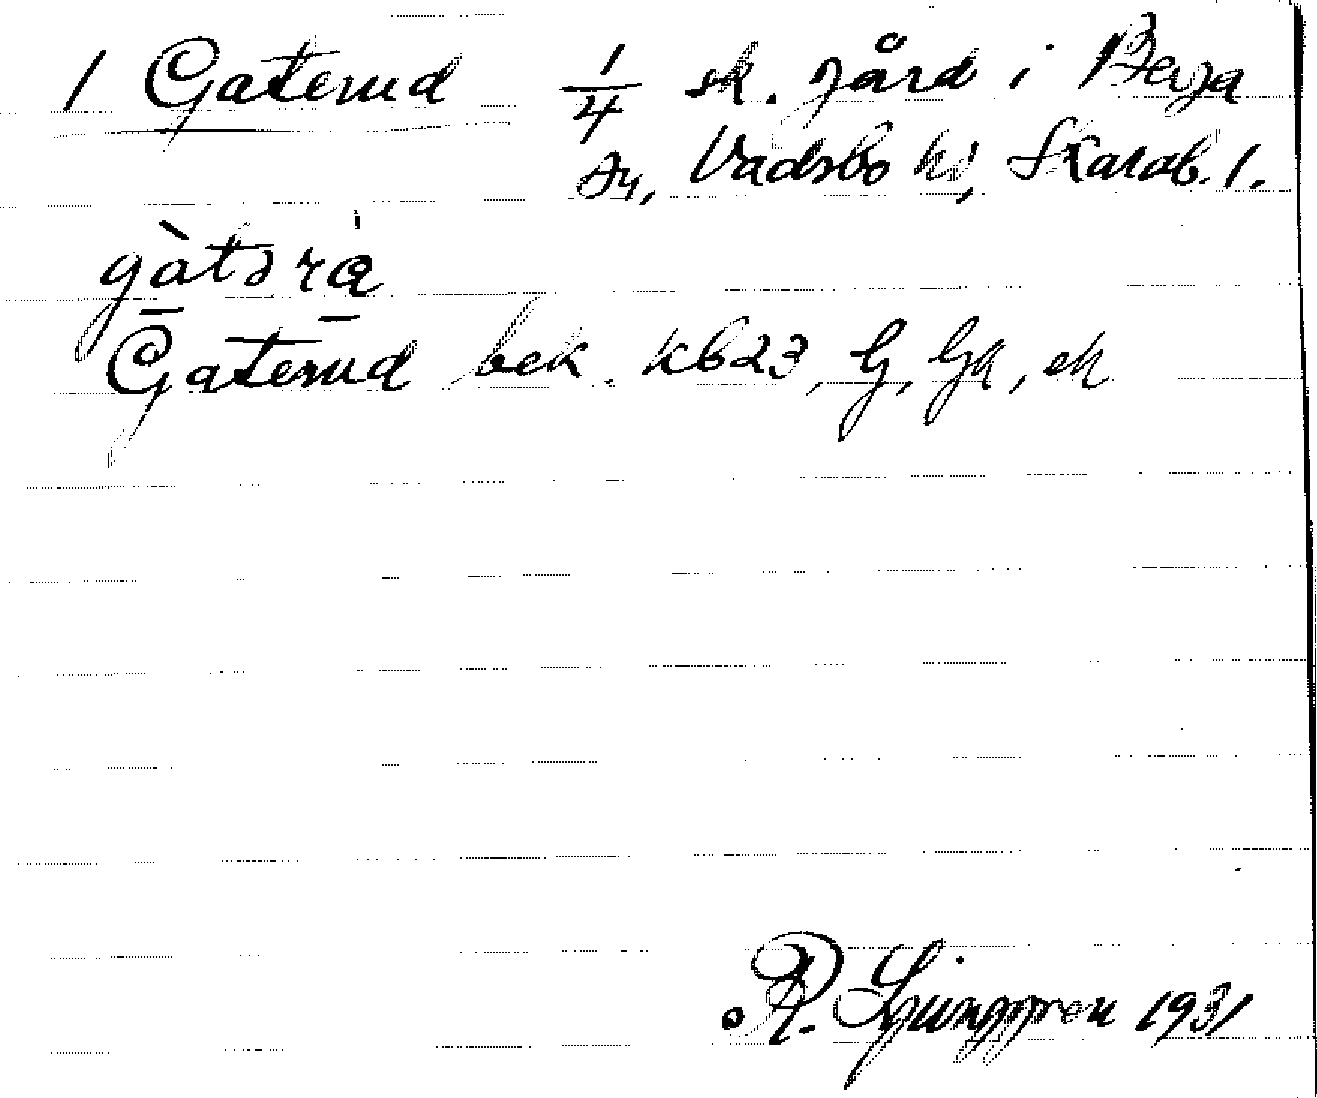 1 Gaterud 1/4 sk. gård i Berga
sn, Vadsbo hd, Skarab. l.
gàtəra
Gaterud bek. kb23, G, Gk, ek
R. Ljunggren 1931